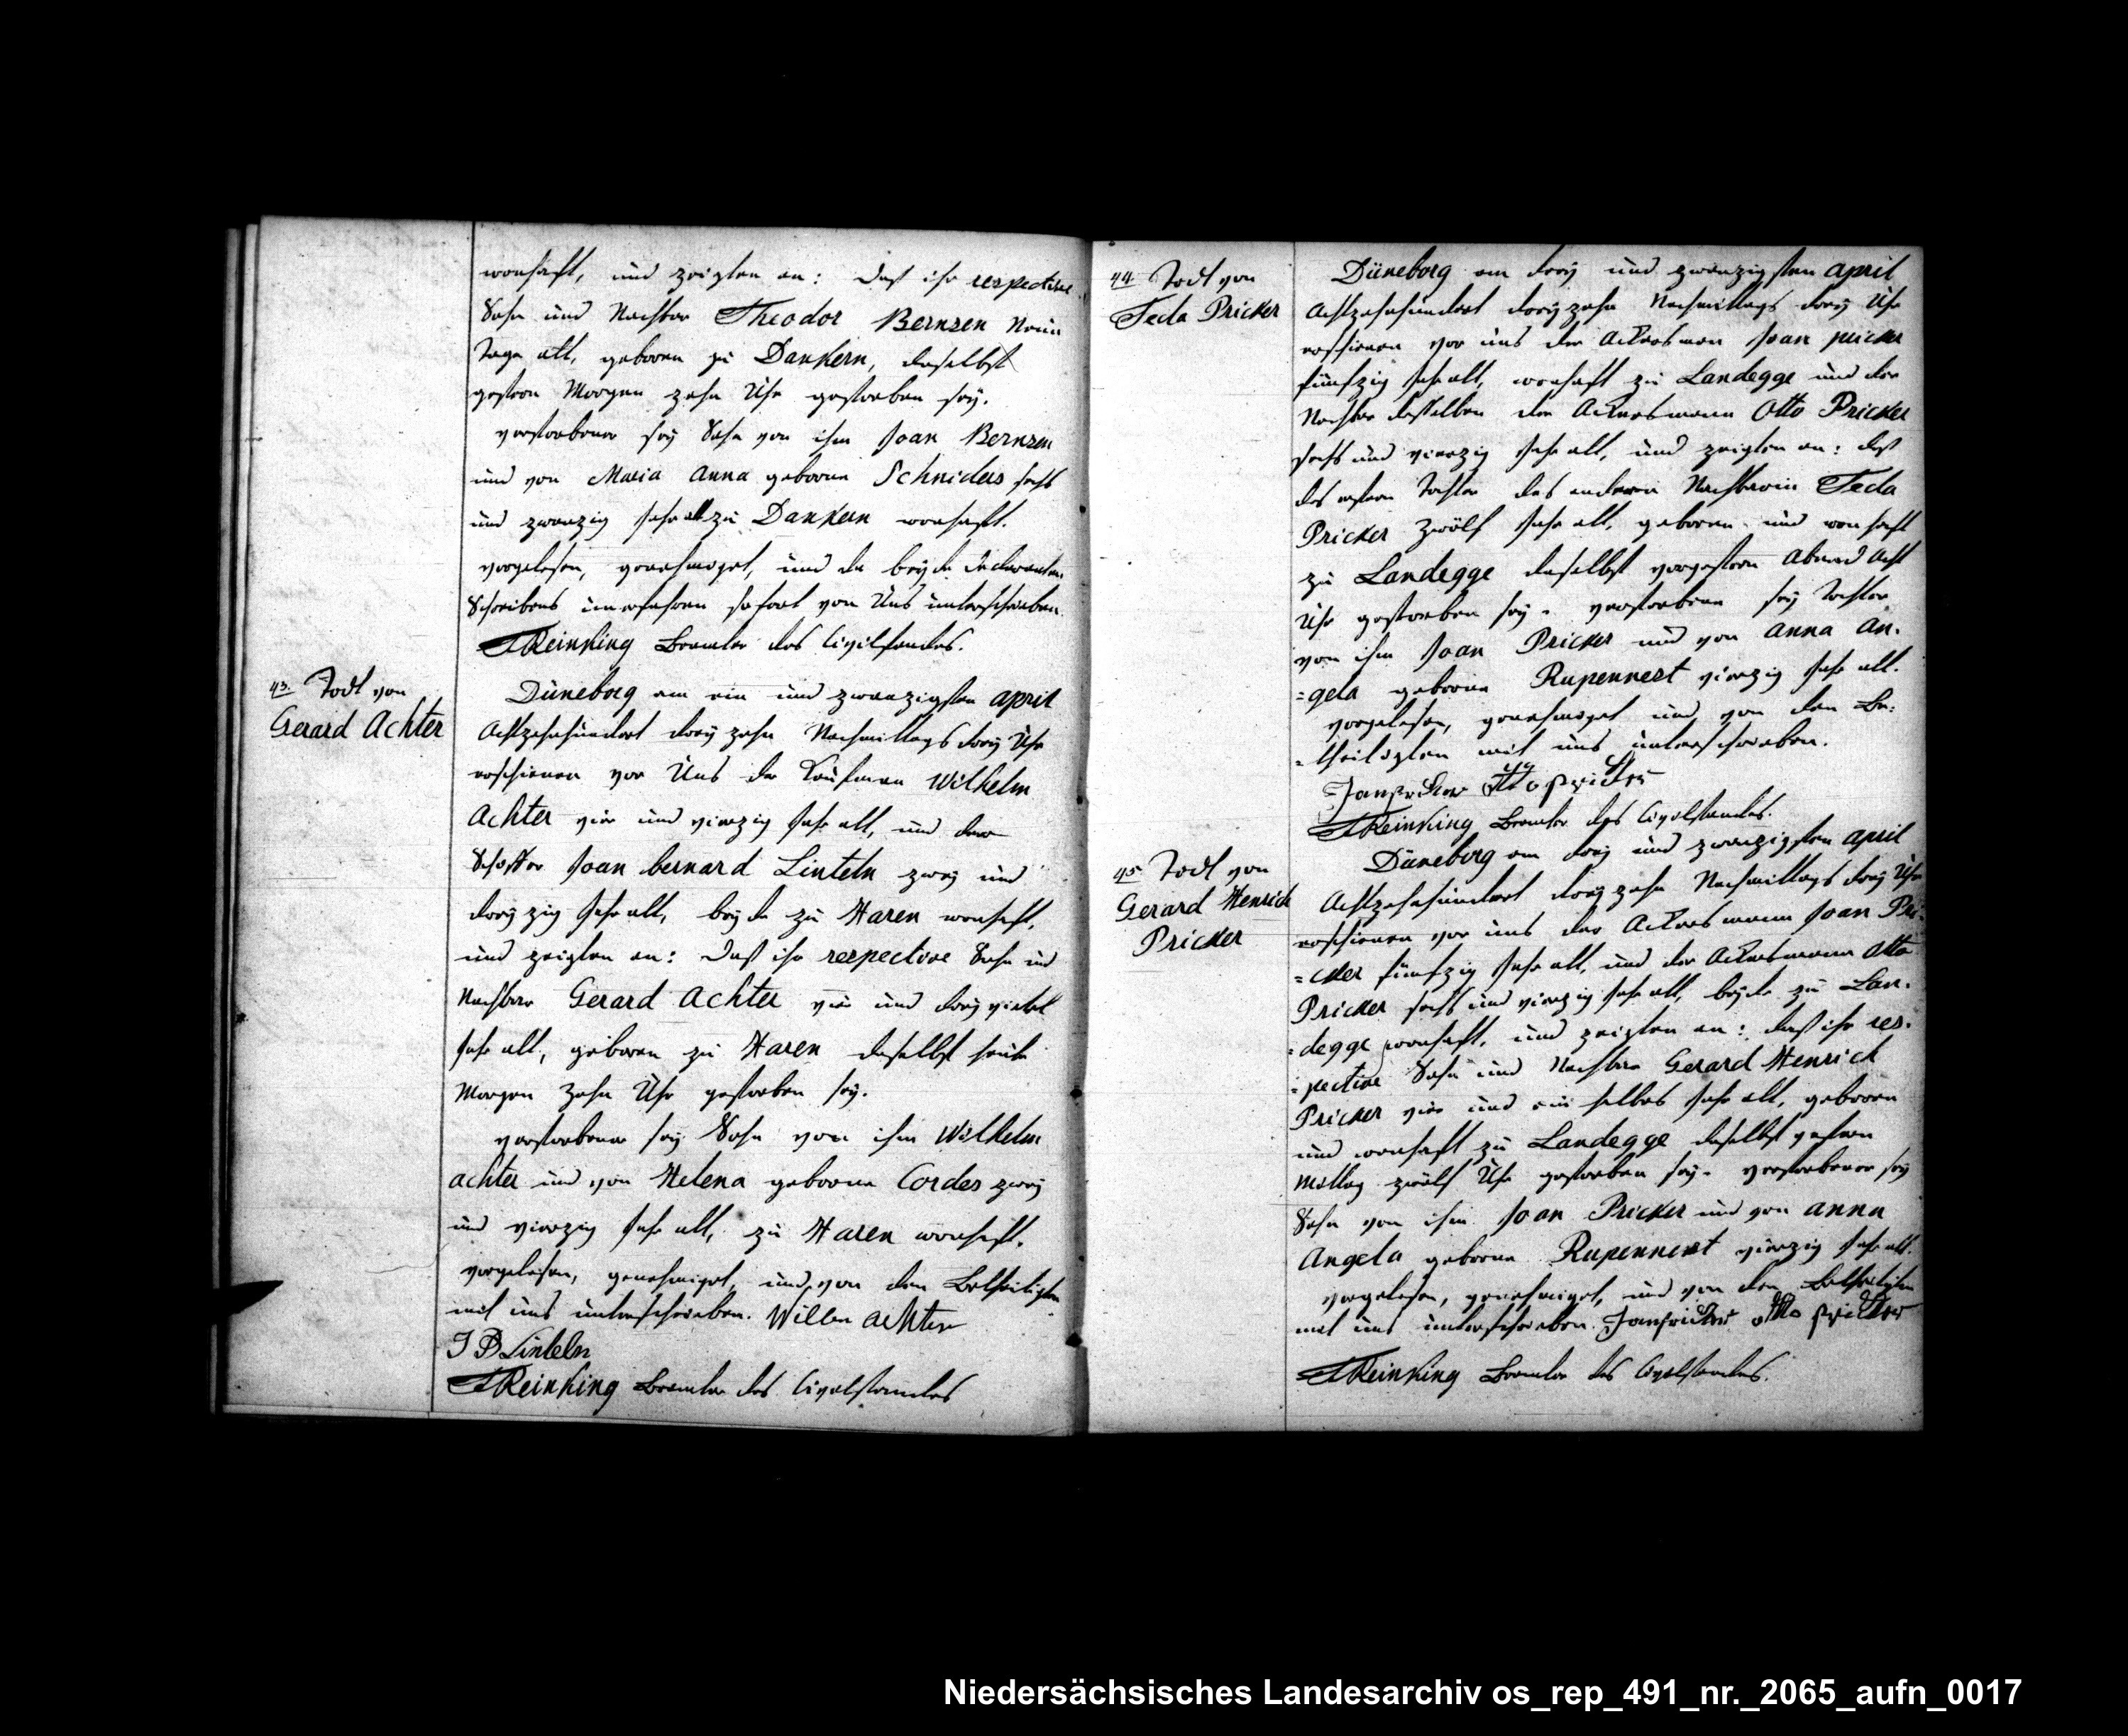 wonhaft, und zeigten an: daß ihr respective
Sohn und Nachbar Theodor Bernzen Neun
Tage alt, geboren zu Dankern, daselbst
gestern Morgen zehn Uhr gestorben sey.
verstorbener sey Sohn von ihm Joan Bernzen
und von Maria Anna geborne Schniders sechs
und zwanzig Jahr alt zu Dankern wonhaft.
vorgelesen, genehmiget, und da beyde Declaranten
Schreibens unerfahren sofort von Uns unterschrieben.
Reinking Beamter des Civilstandes.
43. Todt von
Gerard Achter
Düneborg am ein und zwanzigsten april
Achtzehnhundert dreyzehn Nachmittags drey Uhr
erschienen vor Uns der Kaufman Wilhelm
Achter vier und vierzig Jahr alt, und der
Schuster Joan bernard Linteln zwey und
dreyzig Jahr alt, beyde zu Haren wonhaft,
und zeigten an: Daß ihr respective Sohn und
Nachbar Gerard Achter vier und drey viertel
Jahr alt, geboren zu Haren daselbst heute
Morgen zehn Uhr gestorben sey.
verstorbener sey Sohn von ihm Wilhelm
achter und von Helena geborne Cordes zwey
und vierzig Jahr alt, zu Haren wonhaft.
vorgelesen, genehmiget, und von den Betheiligten
mit uns unterschrieben. Willm achter
J B Linteln
Reinking Beamter des Civelstandes
44. Todt von
Tecla Pricker
Düneborg am drey und zwanzigsten april
Achtzehnhundert dreyzehn Nachmittags drey Uhr
erschienen vor uns der Ackersman Joan pricker
fünfzig Jahr alt, wonhaft zu Landegge und der
Nachbar desselben der Ackersmann Otto Pricker
sechs und vierzig Jahr alt, und zeigten an: daß
des erstern Tochter des anderen Nachbarin Tecla
Pricker zwölf Jahr alt, geboren und wonhaft
zu Landegge daselbst vorgestern Abend Acht
Uhr gestorben sey. verstorbene sey Tochter
von ihm Joan Pricker und von Anna An-
=gela geborne Rupennest vierzig Jahr alt.
vorgelesen, genehmiget und von den Be-
=theiligten mit uns unterschrieben.
Jan pricker otto pricker
Reinking Beamter des Civelstandes.
45 Todt von
Gerard Henrich
Pricker
Düneborg am drey und zwanzigsten april
Achtzehnhundert dreyzehn Nachmittags drey Uhr
erschienen vor uns der Ackersmann Joan Pri-
=cker fünfzig Jahr alt, und der Ackersmann Otto
Pricker sechs und vierzig Jahr alt, beyde zu Lan-
=degge wonhaft, und zeigten an: daß ihr res-
=pective Sohn und Nachbar Gerard Henrich
Pricker vier und ein halbes Jahr alt, geboren
und wonhaft zu Landegge daselbst gestern
Mittag zwölf Uhr gestorben sey. verstorbener sey
Sohn von ihm Joan Pricker und von anna
Angela geborne Rupennest vierzig Jahr alt.
vorgelesen, genehmiget, und von den Betheiligten
mit uns unterschrieben. Jan pricker otto pricker
Reinking Beamter des Civelstandes.
Niedersächsisches Landesarchiv os_rep_491_nr._2065_aufn_0017